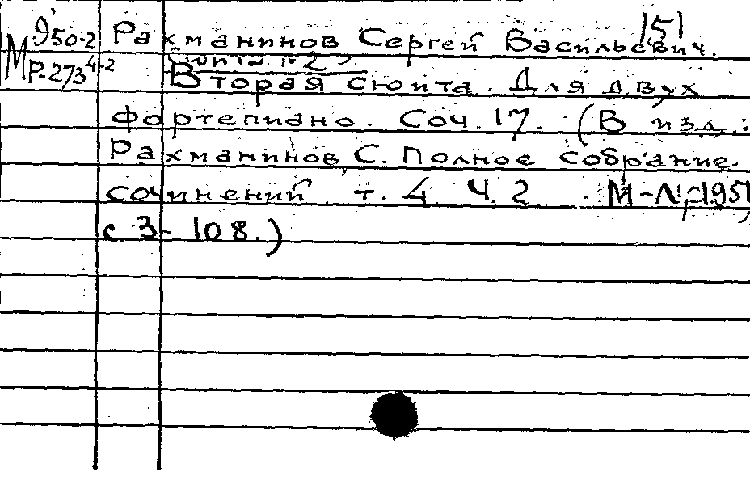 151
М 950-2 Рахманинов Сергей Васильевич.
Р-273 4-2 Сюита № 2
Вторая сюита. Для двух
фортепиано. Соч. 17. (В изд.:
Рахманинов, С. Полное собрание.
сочинений т. 4 ч. 2 М-Л, 1951
с 3-108.)